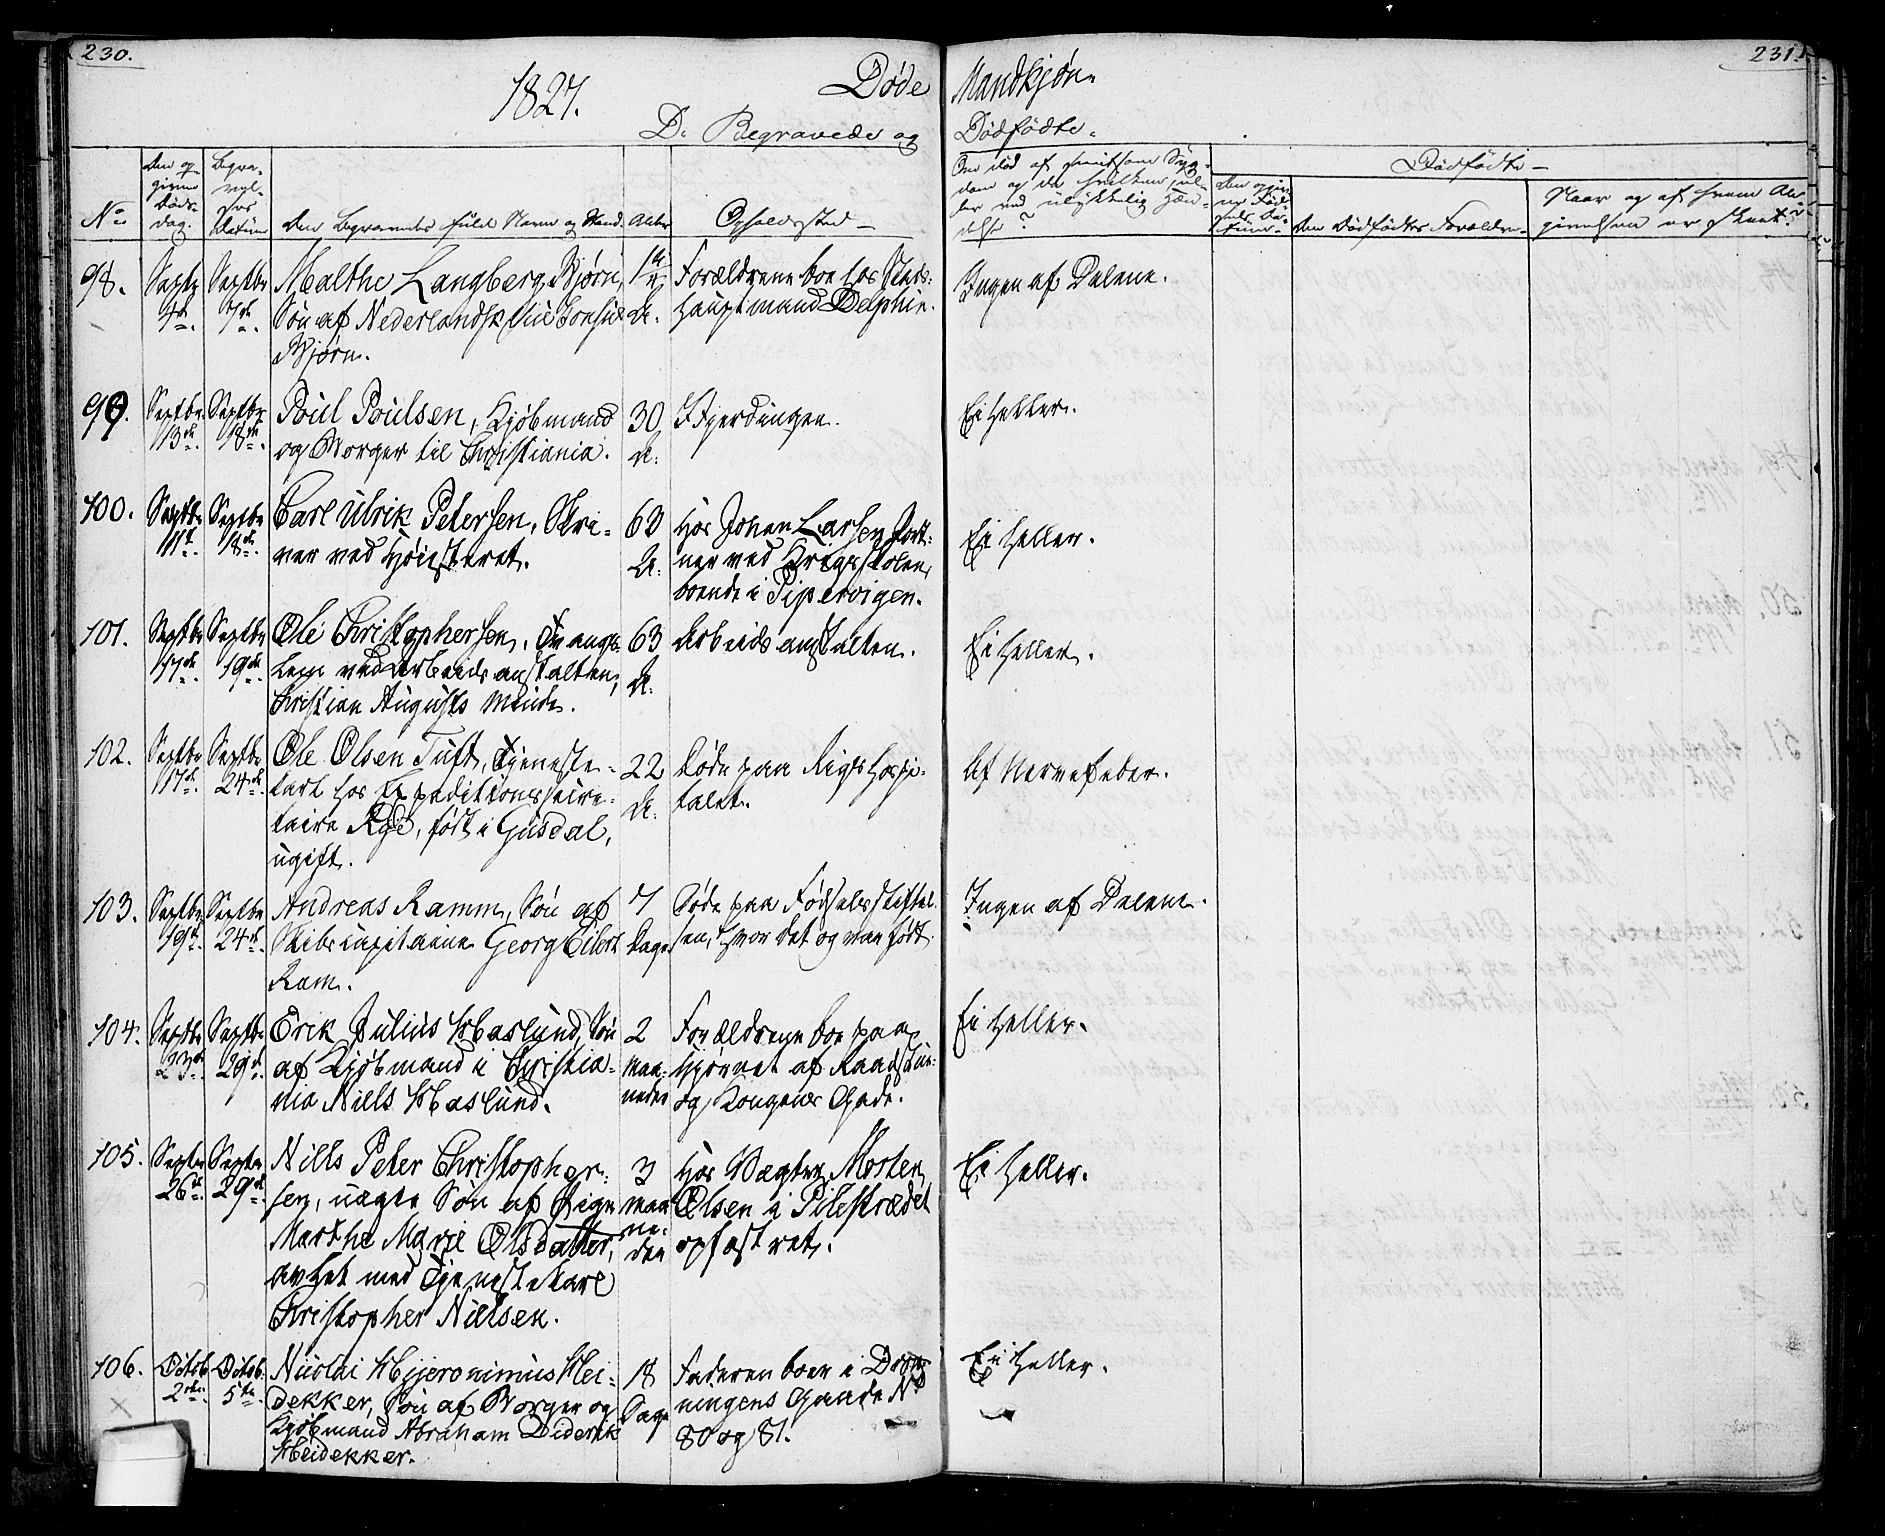 230.
231.
1827.
Døde
Mandkjøn
D: Begravede og
Dødfødte.
No
Den op-
givne
Døds-
dag.
Begra-
vel-
ses
Datum
Den Begravedes fulde Navn og Stand.
Alder
Opholdssted
Om død af smitsom Syg-
dom og da hvilken, el-
ler ved ulykkelig Hæn-
delse?
Dødfødte
Den Dødfødtes Forældre
Naar og af hvem An-
givelsen er skeet?
98.
Septbr
4de
Septbr
7de
Malthe Langberg Bjørn,
Søn af Nederlandsk Vice Consul
Bjørn.
Forældrene boe hos Stads-
hauptmand Delphin.
Ingen af Delene.
99.
Septbr
13de
Septbr
18de
Poul Poulsen, Kjøbmand
og Borger til Christiania.
30
A:
I Fjerdingen.
Ei heller.
100.
Septbr
11te
Septbr
18de
Carl Ulrik Petersen, Skri-
ver ved Høiesteret.
A:
Hos Johan Larsen Port-
ner ved Krigsskolen,
boende i Pipervigen.
Ei heller.
101.
Septbr
17de
Septbr
19de
Ole Christophersen, Tvangs-
lem ved Arbeidsanstalten,
Christian Augusts Minde.
63
A:
Arbeidsanstalten.
Ei heller.
102.
Septbr
17de
Septbr
24de
Ole Olsen Tuft, Tjeneste-
karl hos Expeditionssecre-
taire Rye, født i Gusdal,
ugift.
22
A:
Døde paa Rigshospi-
talet.
Af Nervefeber.
103.
Septbr
19de
Septbr
24de
Andreas Ramm, Søn af
Skibscapitaine Georg Eilert
Ram.
7
Dage
Døde paa Fødselsstiftel-
sen, hvor det og var født.
Ingen af Delene.
104.
Septbr
23de
Septbr
29de
Erik Julius Haslund, Søn
af Kjøbmand i Christia-
nia Niels Haslund.
2
Maa-
neder
Forældrene boe paa
Hjørnet af Raadstue-
og Kongens Gade.
Ei heller.
105.
Septbr
26de
Septbr
29de
Niels Peter Christopher-
sen, uægte Søn af Pige
Marthe Marie Olsdatter,
avlet med Tjenestekarl
Christopher Nielsen.
3
Maa-
ne-
der
Hos Vægter Morten
Olsen i Pilestrædet
opfostret.
Ei heller.
106.
Octob.
2den
Octob.
5te
Nicolai Hijeronimus Hei-
dekker, Søn af Borger og
Kjøbmand Abraham Diderik
Heidekker.
18
Dage
Faderen boer i Dron-
ningens Gaade No
80 og 81.
Ei heller.